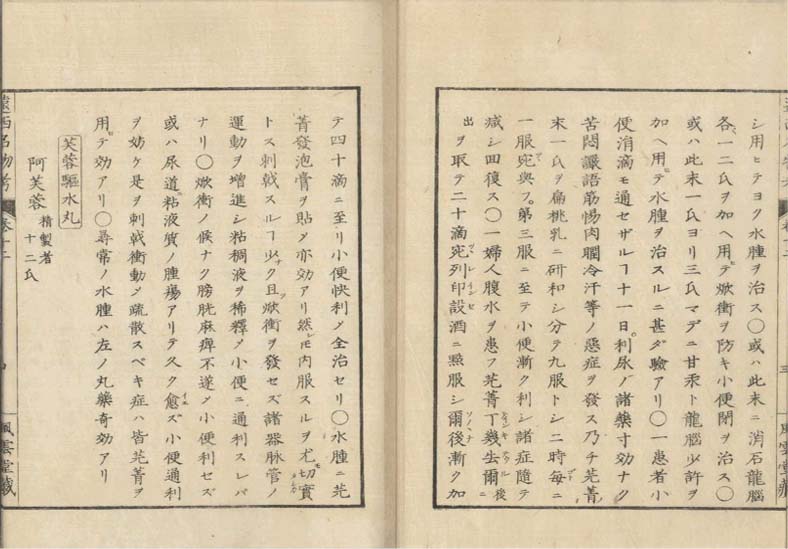 シ用ヒテヨク水腫ヲ治ス〇或ハ此末ニ消石龍脳
各一二氏ヲ加ヘ用テ焮衝ヲ防キ小便閉ヲ治ス〇
或ハ此末一氏ヨリ三氏マデニ甘汞ト龍脳少許ヲ
加ヘ用テ水腫ヲ治スルニ甚ダ驗アリ〇一患者小
便涓滴モ通セザルヿ十一日利尿ノ諸藥寸効ナク
苦悶讝語筋惕肉瞤冷汗等ノ惡症ヲ發ス乃チ芫菁
末一氏ヲ扁桃乳ニ研和シ分テ九服トシ二時毎ニ
一服宛與フ第三服ニ至テ小便漸ク利シ諸症隨テ
減シ回復ス〇一婦人腹水ヲ患フ芫菁丁幾去爾後ニ
出ヲ取テ二十滴宛列印設酒ニ㸃服シ爾後漸ク加
テ四十滴ニ至リ小便快利メ全治セリ〇水腫ニ芫
菁發泡膏ヲ貼メ亦効アリ然モ内服スルヲ尤切實
トス刺戟スルヿ少ク且焮衝ヲ發セズ諸器脉管ノ
運動ヲ增進シ粘稠液ヲ稀釋メ小便ニ通利スレバ
ナリ〇焮衝ノ候ナク膀胱麻痺不遂メ小便利セズ
或ハ尿道粘液質ノ腫瘍アリテ久ク愈ズ小便通利
ヲ妨ケ是ヲ刺戟衝動メ疏散スベキ症ハ皆芫菁ヲ
用テ効アリ〇尋常ノ水腫ハ左ノ丸藥奇効アリ
芙蓉驅水丸
阿芙蓉 精製者 十二氏
遠西名物考 卷十二
風雲堂藏
三
風雲堂藏